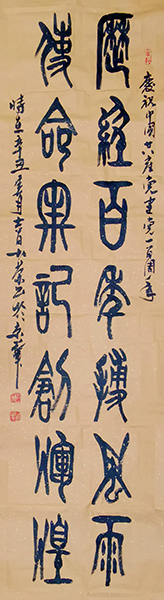 慶祝中國共產黨建黨一百周年
歷經百年搏風雨
使命牢記創輝煌
時在辛丑年月吉日書於京華